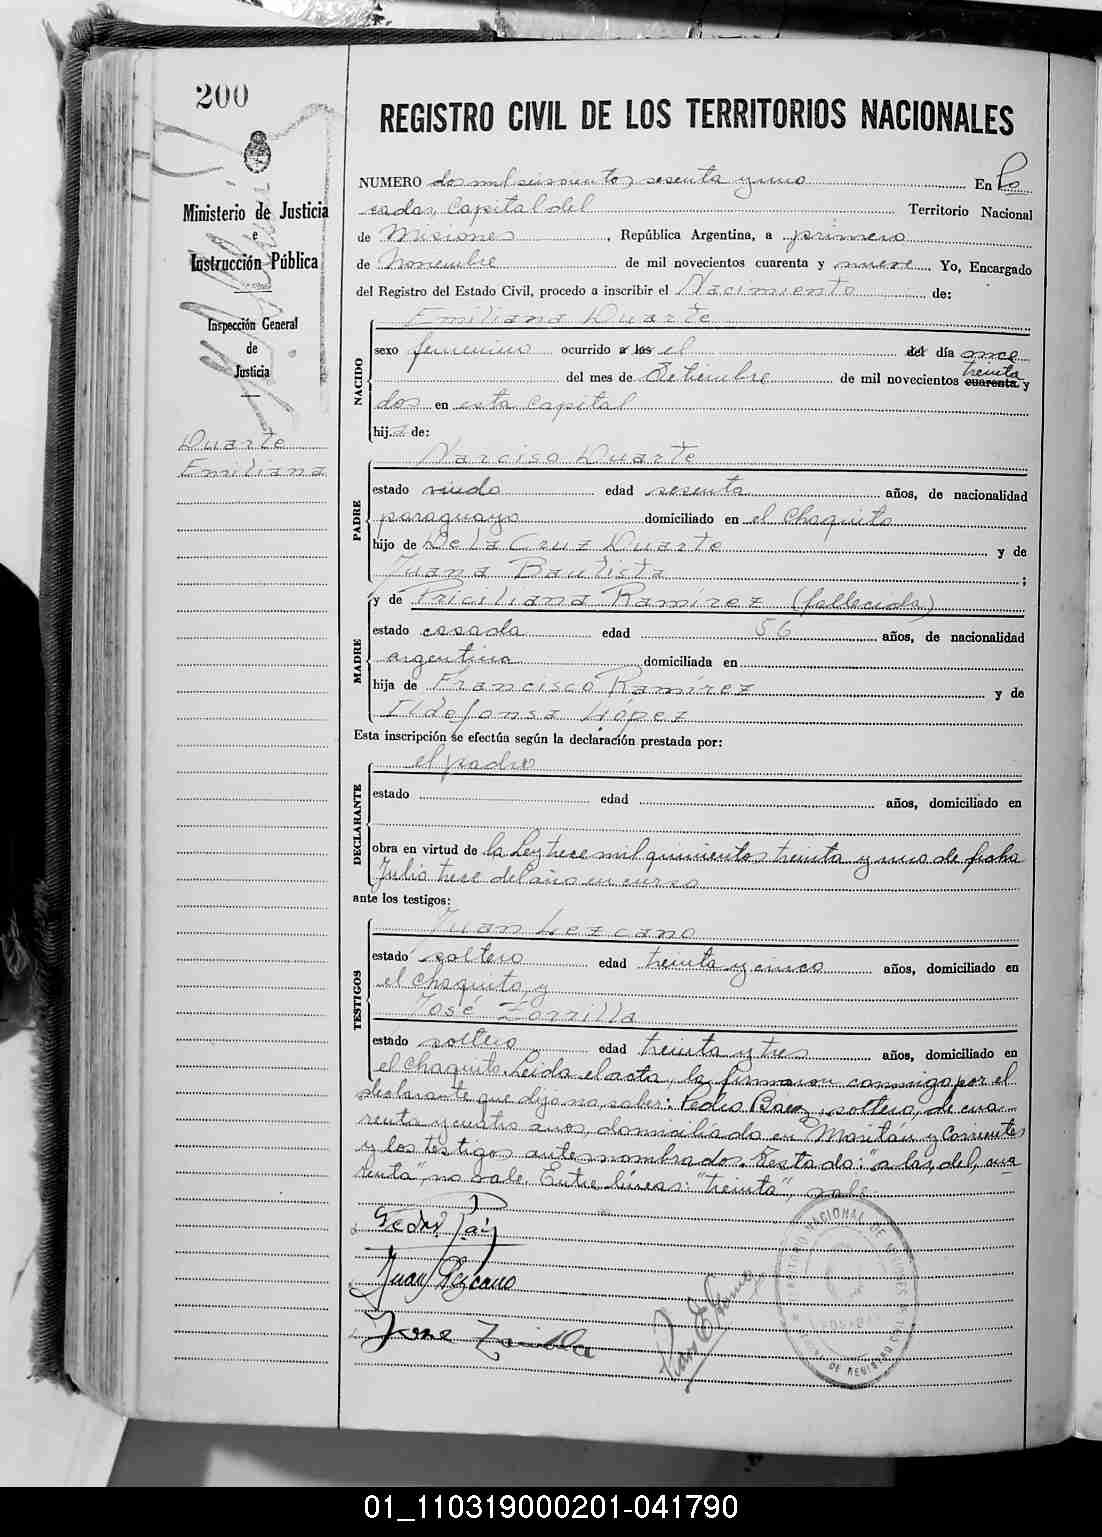 200
Ministerio de Justicia
e
Instrucción Pública
Inspección General
de
Justicia
Duarte
Emiliana
REGISTRO CIVIL DE LOS TERRITORIOS NACIONALES
NUMERO dos mil seiscientos sesenta y uno En Po
sadas, Capital del Territorio Nacional
de Misiones, República Argentina, a primero
de Noviembre de mil novecientos cuarenta y nueve Yo, Encargado
del Registro del Estado Civil, procedo a inscribir el Nacimiento de:
NACIDO
Emiliana Duarte
sexo femenino ocurrido a las el del día once
treinta
del mes de Setiembre de mil novecientos cuarenta y
dos en esta capital
hija de:
PADRE
Narciso Duarte
estado viudo edad sesenta años, de nacionalidad
paraguayo domiciliado en el Chaquito
hijo de De la Cruz Duarte y de
Juana Bautista ;
y de Priciliana Ramírez (fallecida)
MADRE
estado casada edad 56 años, de nacionalidad
argentina domiciliada en
hija de Francisco Ramírez y de
Ildefonsa López
Esta inscripción se efectúa según la declaración prestada por:
DECLARANTE
el padre
estado edad años, domiciliado en
obra en virtud de la Ley trece mil quinientos treinta y uno de fecha
Julio trece del año en curso
ante los testigos:
TESTIGOS
Juan Lezcano
estado soltero edad treinta y cinco años, domiciliado en
el Chaquito, y
José Zorrilla
estado soltero edad treinta y tres años, domiciliado en
el Chaquito. Leida el acta, la firmaron conmigo por el
declarante que dijo no saber: Pedro Báez, soltero, de cua
renta y cuatro años, domiciliado en Maritán y Corrientes
y los testigos antes nombrados. Testado: "a las, del, cua
renta", no vale. Entre líneas: "treinta", vale.
Juan Lezcano
Jose Zorrilla
01_110319000201-041790